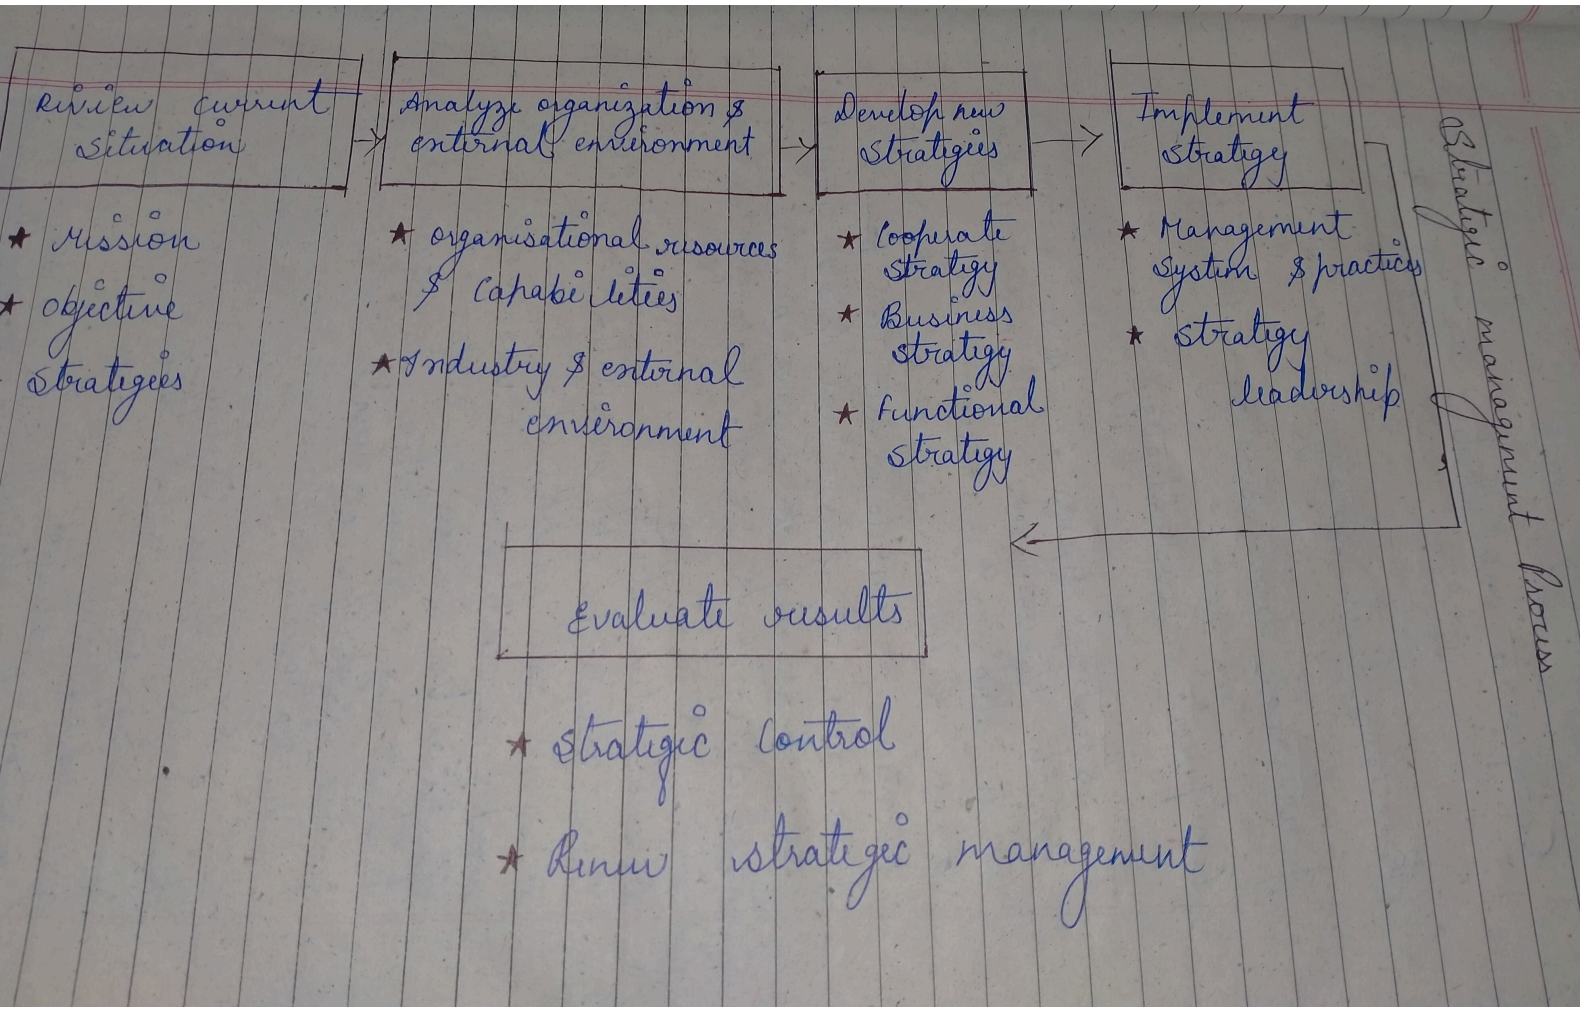 Review current
Situation
Analyze organization &
external environment
Develop new
Strategies
Implement
Strategy
★ Mission
★ Objective
Strategies
★ Organisational resources
& Capabilities
★ Industry & external
environment
★ Cooperate
Strategy
★ Business
Strategy
★ Functional
Strategy
★ Management
System & practices
★ Strategy
leadership
Strategic management Process
Evaluate results
★ Strategic Control
★ Renew strategic management